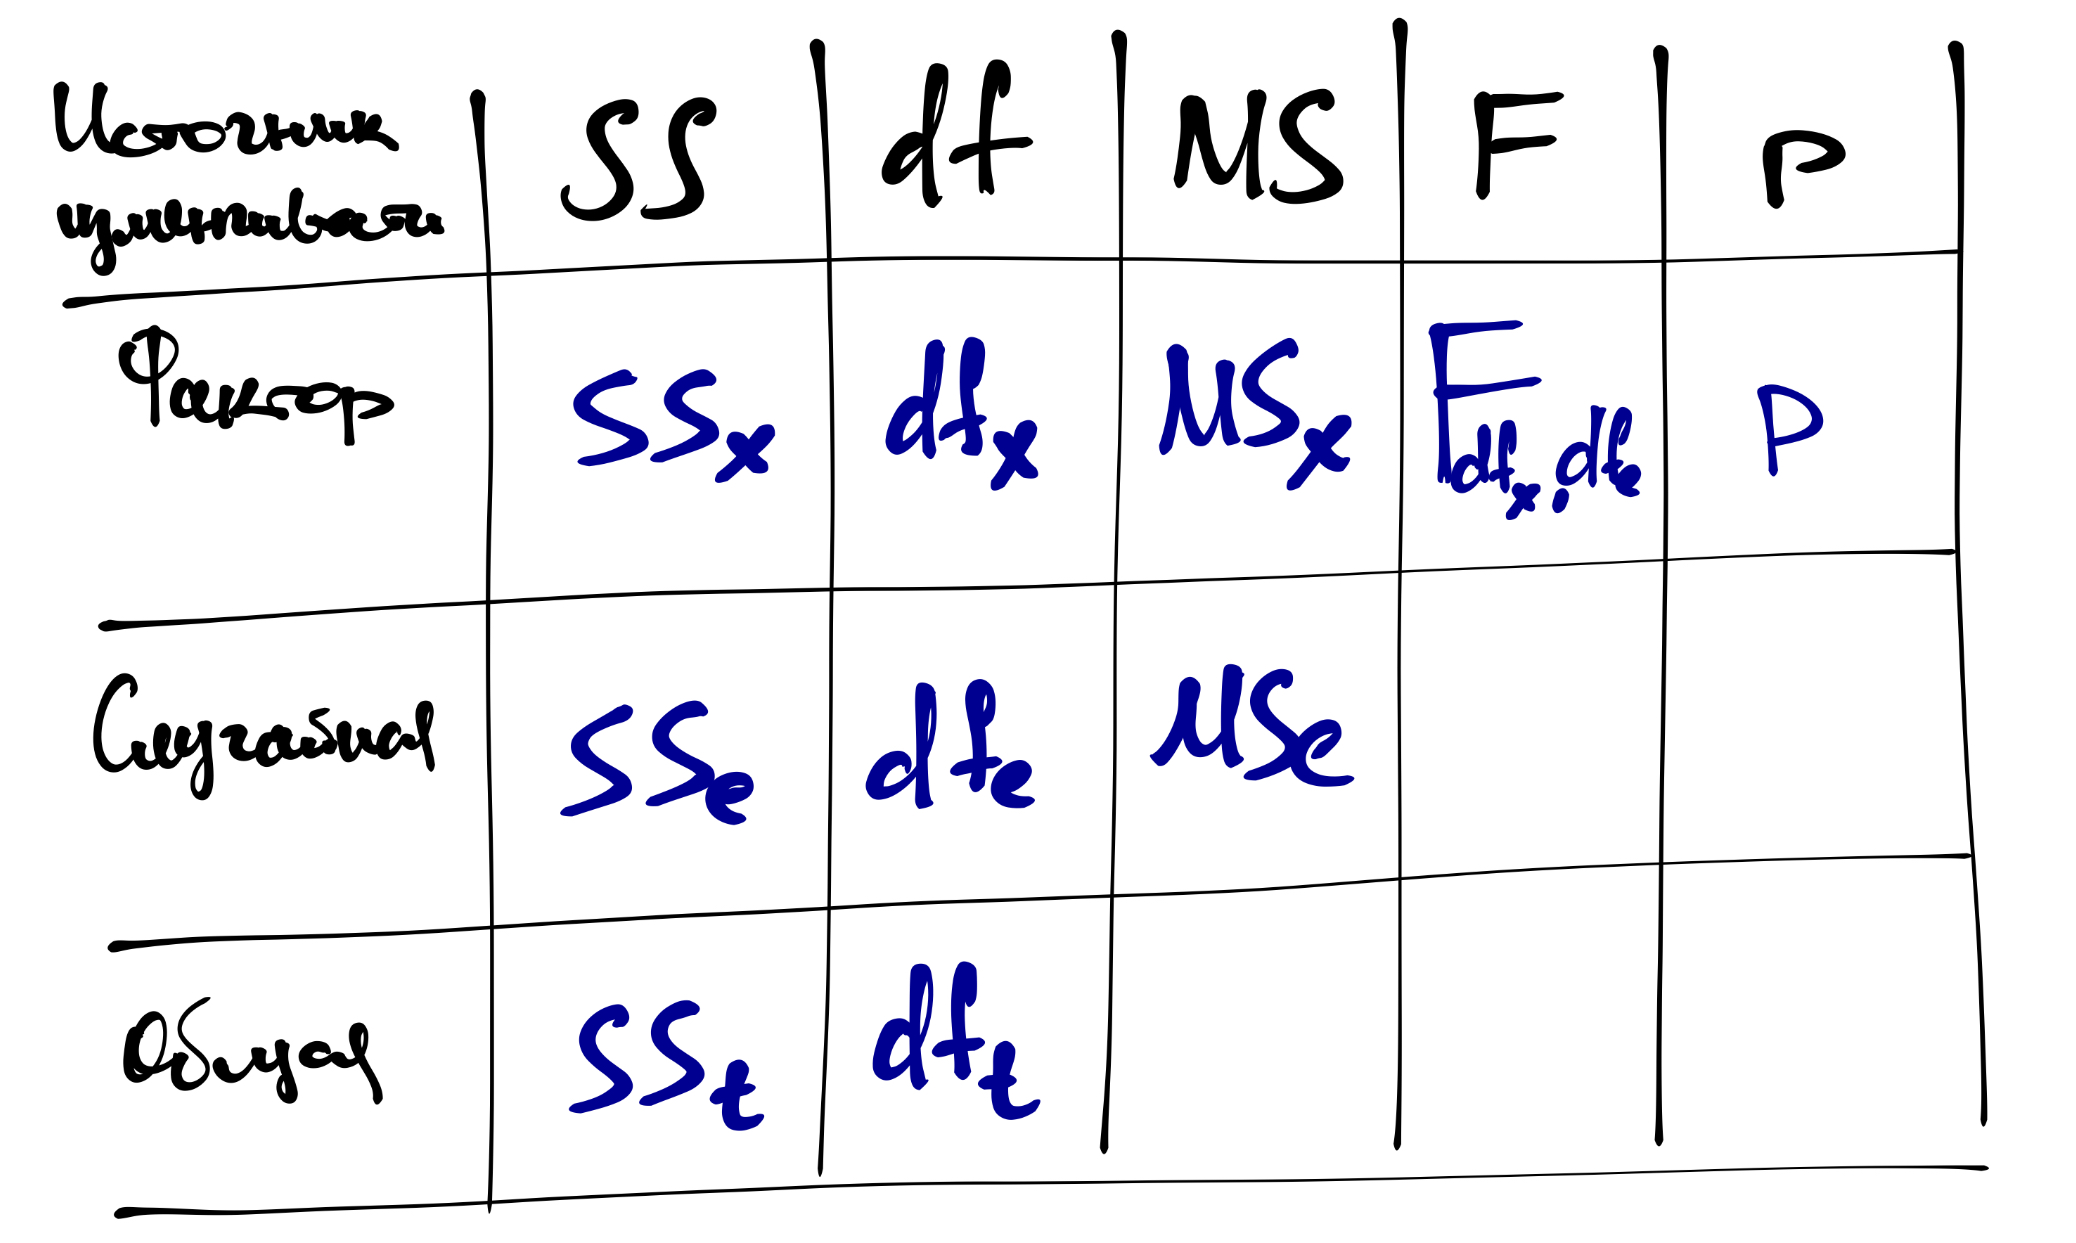 Источник изменчивости SS df MS F P
Фактор SSx dfx MSx Fdfx,dfe P
Случайная SSe dfe MSe
Общая SSt dft